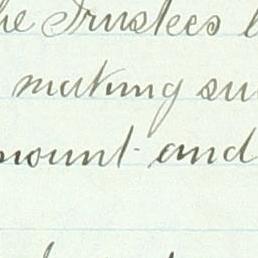 he Trustees
making su
mount and